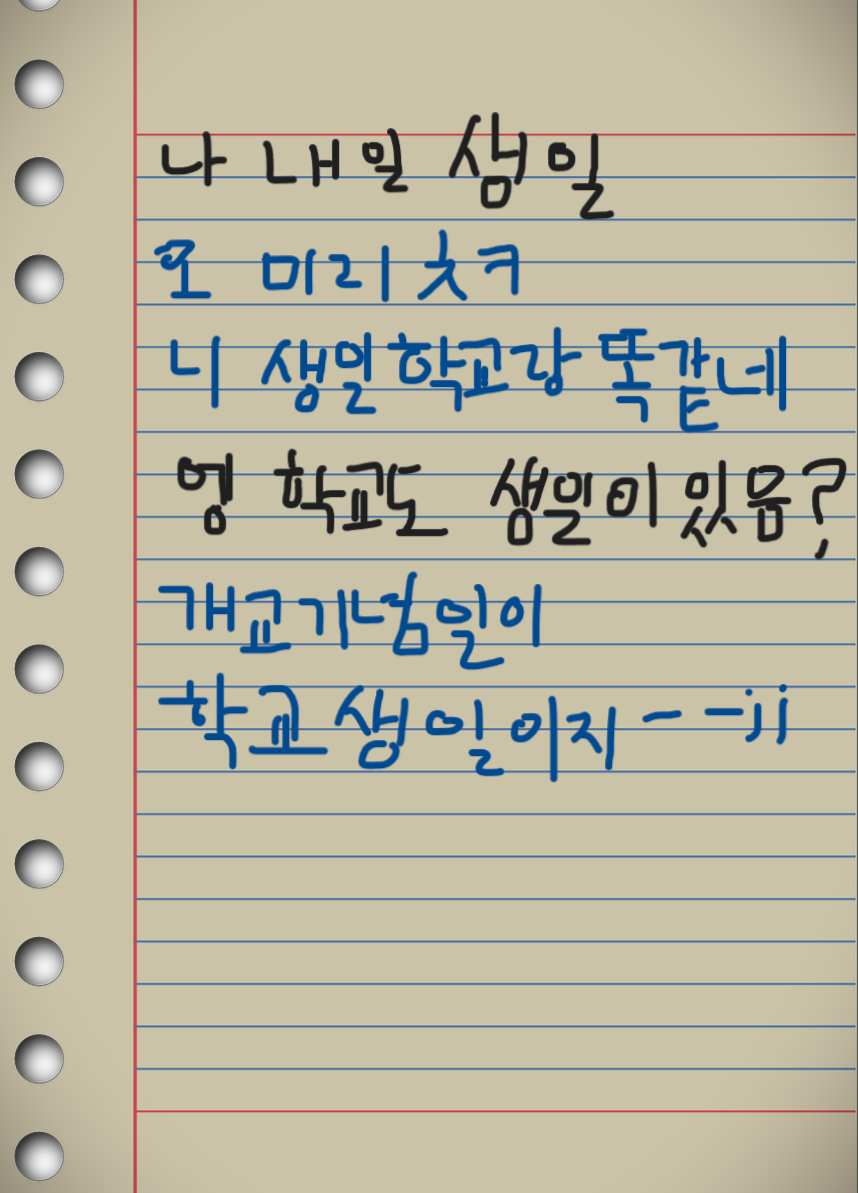 나 내일 생일
오 미리 ㅊㅋ
니 생일 학교랑 똑같네
엥 학교도 생일이 있음?
개교기념일이
학교 생일이지 - -;;